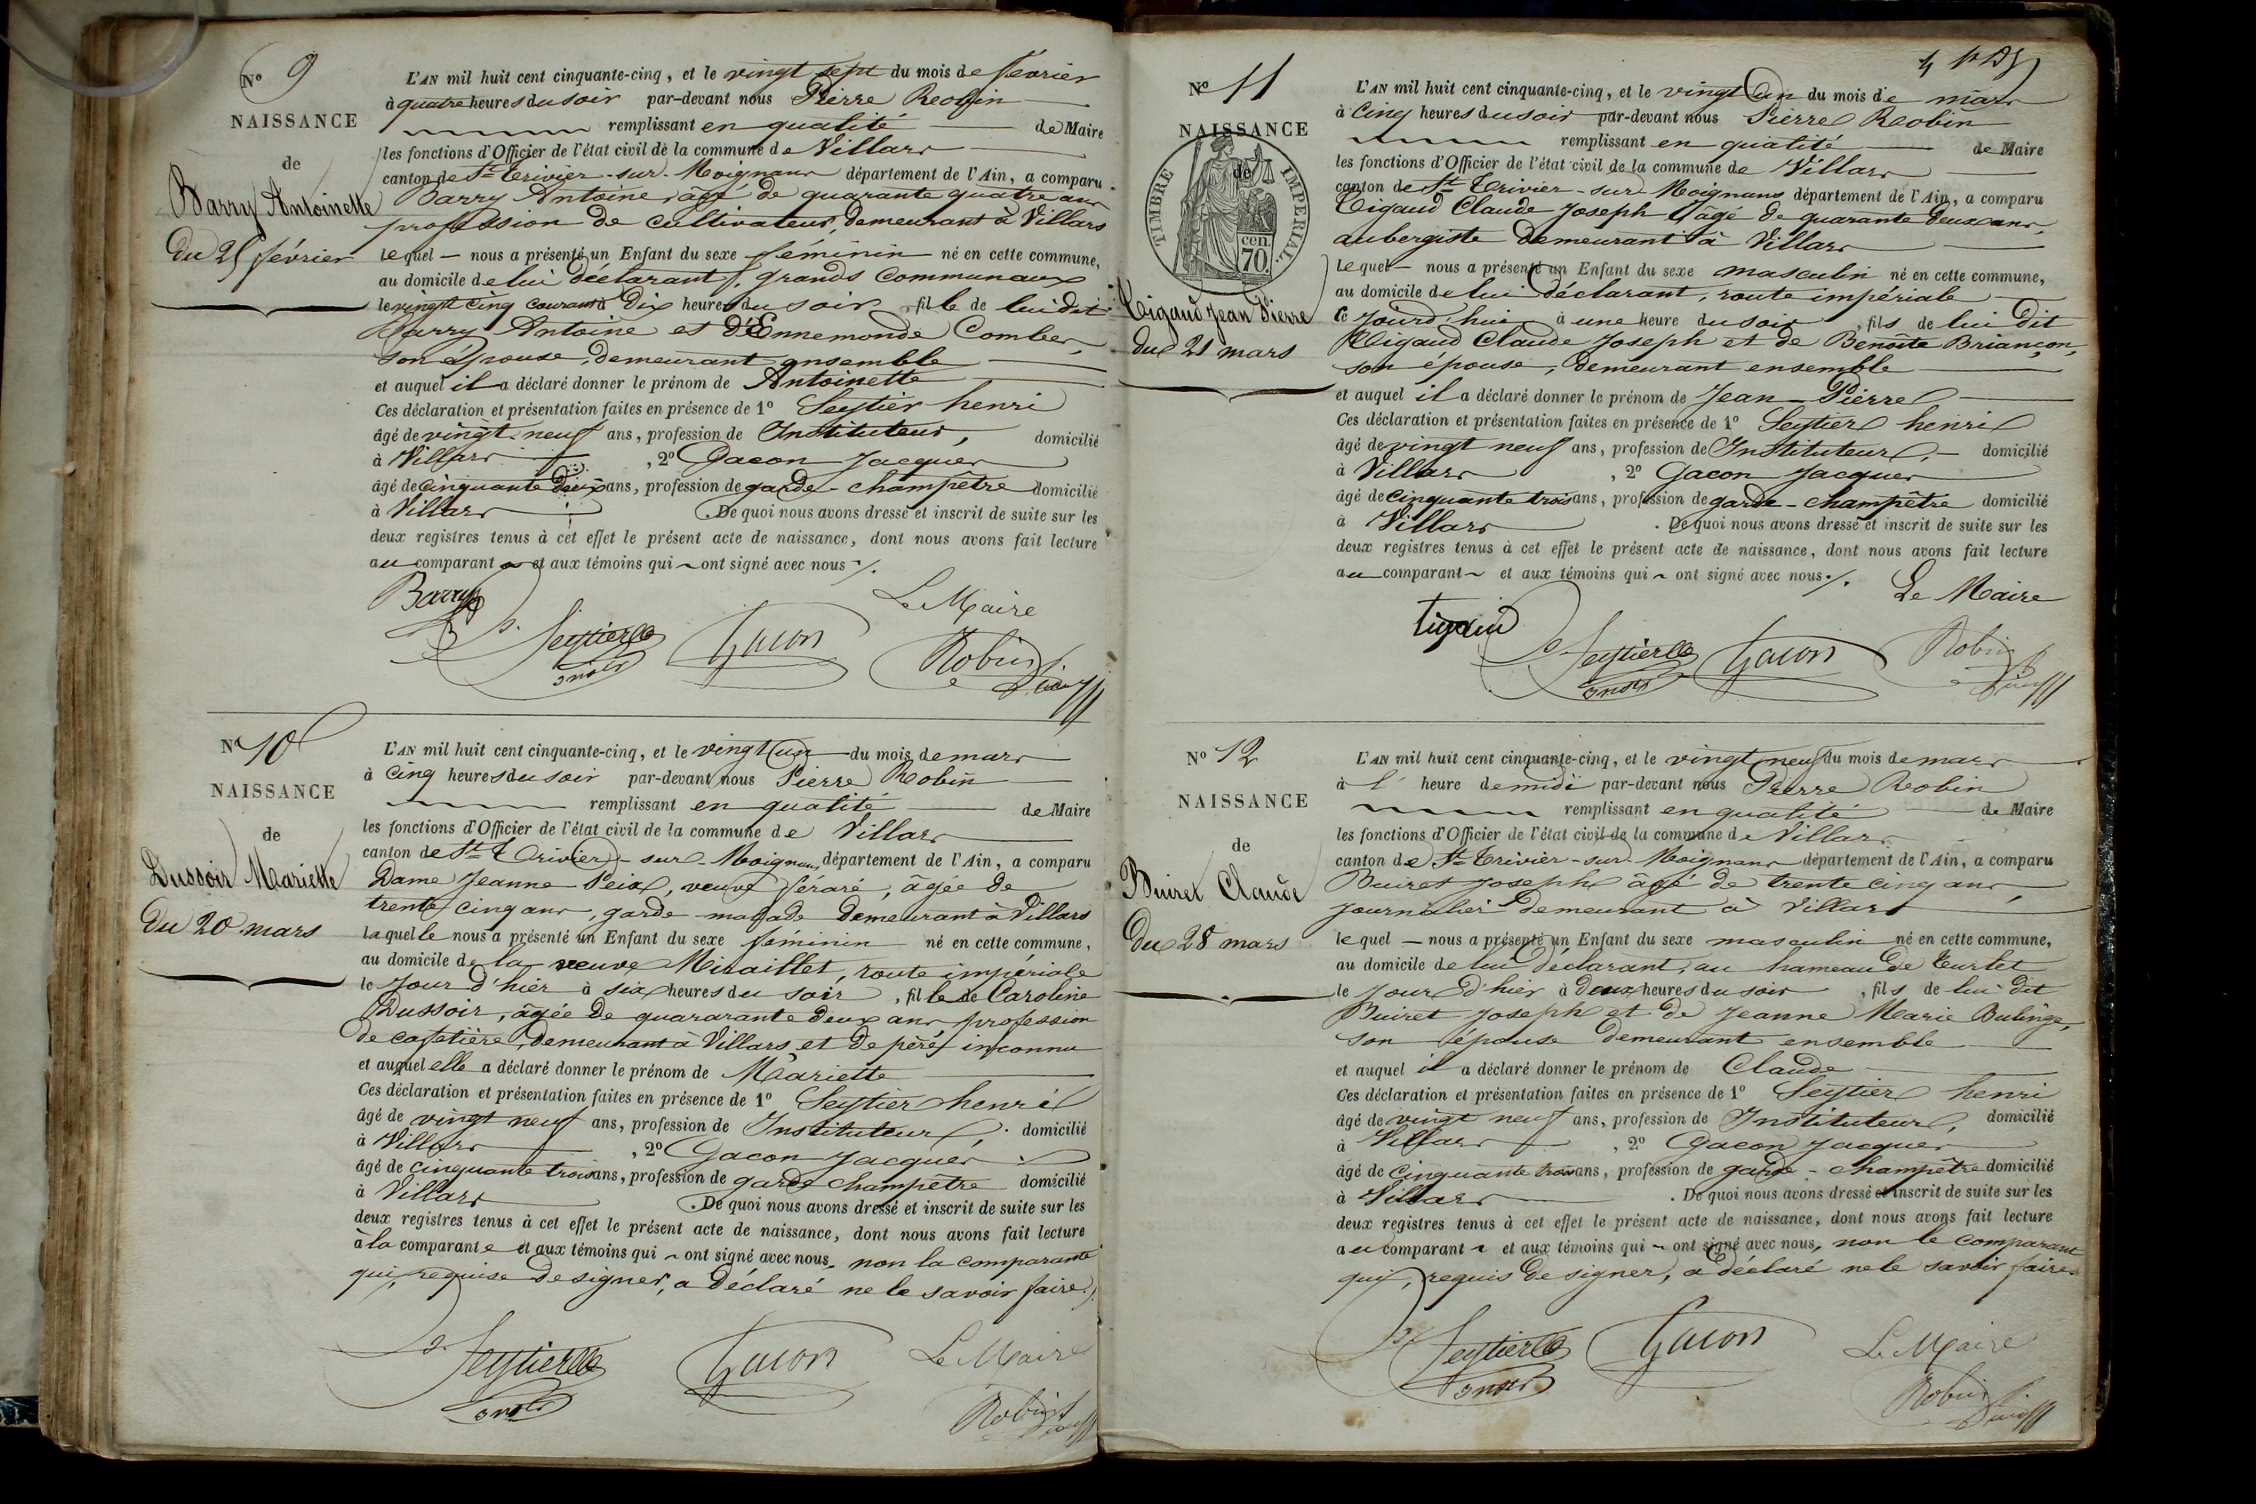 N° 9
NAISSANCE
de
Barry Antoinette
Du 25 février
L'AN mil huit cent cinquante-cinq, et le vingt sept du mois de février
à quatre heures du soir par-devant nous Pierre Robin
remplissant en qualité de Maire
les fonctions d'Officier de l'état civil de la commune de Villars
canton de St Trivier-sur-Moignans département de l'Ain, a comparu
Barry Antoine, âgé de quarante quatre ans
profession de cultivateur, demeurant à Villars
lequel nous a présenté un Enfant du sexe féminin né en cette commune,
au domicile de lui déclarant, grands communaux
le vingt cinq courant à Dix heures du soir, fille de lui dit
Barry Antoine et d'Ennemonde Combe
son épouse, demeurant ensemble
et auquel il a déclaré donner le prénom de Antoinette
Ces déclaration et présentation faites en présence de 1° Seytier henri
âgé de vingt-neuf ans, profession de Instituteur, domicilié
à Villars, 2° Gacon Jacques
âgé de cinquante deux ans, profession de garde-champêtre domicilié
à Villars. De quoi nous avons dressé et inscrit de suite sur les
deux registres tenus à cet effet le présent acte de naissance, dont nous avons fait lecture
au comparant et aux témoins qui ont signé avec nous ./.
Barry
Le Maire
Seytier Gacon Robin
N° 10
NAISSANCE
de
Dussoir Mariette
Du 20 mars
L'AN mil huit cent cinquante-cinq, et le vingt un du mois de mars
à cinq heures du soir par-devant nous Pierre Robin
remplissant en qualité de Maire
les fonctions d'Officier de l'état civil de la commune de Villars
canton de St Trivier-sur-Moignans département de l'Ain, a comparu
Dame Jeanne Peix, veuve féraré, âgée de
trente cinq ans, garde-malade demeurant à Villars
laquelle nous a présenté un Enfant du sexe féminin né en cette commune,
au domicile de la veuve Miraillet, route impériale
le jour d'hier à six heures du soir, fille de Caroline
Dussoir, âgée de quararante deux ans, profession
de cafetière, demeurant à Villars et de père inconnu
et auquel elle a déclaré donner le prénom de Mariette
Ces déclaration et présentation faites en présence de 1° Seytier henri
âgé de vingt neuf ans, profession de Instituteur, domicilié
à Villars, 2° Gacon Jacques
âgé de cinquante trois ans, profession de garde champêtre domicilié
à Villars. De quoi nous avons dressé et inscrit de suite sur les
deux registres tenus à cet effet le présent acte de naissance, dont nous avons fait lecture
à la comparante et aux témoins qui ont signé avec nous, non la comparante
qui, requise de signer, a déclaré ne le savoir faire ./.
Seytier Gacon Le Maire
Robin
N° 11
NAISSANCE
de
TIMBRE IMPERIAL
cen. 70.
Tigaud Jean Pierre
du 21 mars
L'AN mil huit cent cinquante-cinq, et le vingt un du mois de mars
à cinq heures du soir par-devant nous Pierre Robin
remplissant en qualité de Maire
les fonctions d'Officier de l'état civil de la commune de Villars
canton de St Trivier-sur-Moignans département de l'Ain, a comparu
Tigaud Claude Joseph, âgé de quarante deux ans,
aubergiste demeurant à Villars
lequel nous a présenté un Enfant du sexe masculin né en cette commune,
au domicile de lui déclarant, route impériale
le jourd'hui à une heure du soir, fils de lui dit
Tigaud Claude Joseph et de Benoîte Briançon,
son épouse, demeurant ensemble
et auquel il a déclaré donner le prénom de Jean-Pierre
Ces déclaration et présentation faites en présence de 1° Seytier henri
âgé de vingt neuf ans, profession de Instituteur, domicilié
à Villars, 2° Gacon Jacques
âgé de cinquante trois ans, profession de garde-champêtre domicilié
à Villars. De quoi nous avons dressé et inscrit de suite sur les
deux registres tenus à cet effet le présent acte de naissance, dont nous avons fait lecture
au comparant et aux témoins qui ont signé avec nous ./.
Le Maire
Seytier Gacon Robin
N° 12
NAISSANCE
de
Buiret Claude
Du 28 mars
L'AN mil huit cent cinquante-cinq, et le vingt neuf du mois de mars
à l' heure de midi par-devant nous Pierre Robin
remplissant en qualité de Maire
les fonctions d'Officier de l'état civil de la commune de Villars
canton de St Trivier-sur-Moignans département de l'Ain, a comparu
Buiret Joseph âgé de trente cinq ans,
journalier demeurant à Villars
lequel nous a présenté un Enfant du sexe masculin né en cette commune,
au domicile de lui déclarant, au hameau de Turlet
le jour d'hier à deux heures du soir, fils de lui dit
Buiret Joseph et de Jeanne Marie Bulinge,
son épouse demeurant ensemble
et auquel il a déclaré donner le prénom de Claude
Ces déclaration et présentation faites en présence de 1° Seytier henri
âgé de vingt neuf ans, profession de Instituteur, domicilié
à Villars, 2° Gacon Jacques
âgé de cinquante trois ans, profession de garde-champêtre domicilié
à Villars. De quoi nous avons dressé et inscrit de suite sur les
deux registres tenus à cet effet le présent acte de naissance, dont nous avons fait lecture
au comparant et aux témoins qui ont signé avec nous, non le comparant
qui, requis de signer, a déclaré ne le savoir faire.
Seytier Gacon Le Maire
Robin